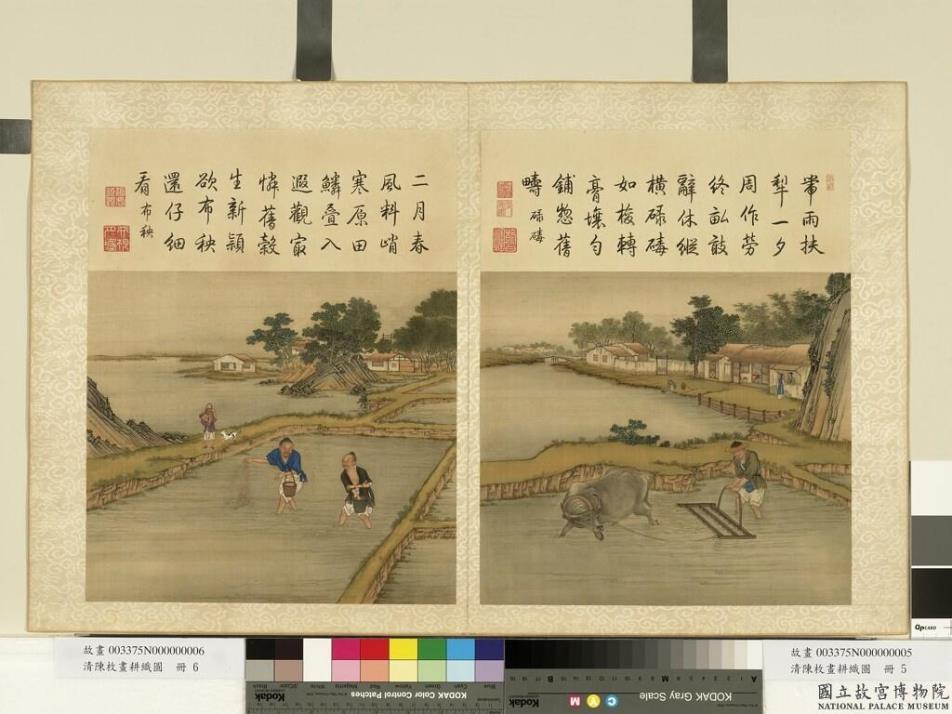 帶雨扶
犁一夕
周作勞
終畝敢
辭休縱
橫碌碡
如梭轉
膏壤勻
鋪整舊
疇 碌碡
二月春
風料峭
寒原田
鱗疊入
遐觀最
憐舊穀
生新穎
欲布秧
還仔細
看 布秧
故畫 003375N000000006
清陳枚畫耕織圖 冊 6
故畫 003375N000000005
清陳枚畫耕織圖 冊 5
Kodak Color Control Patches
Blue
Cyan
Green
Yellow
Red
Magenta
White
3/Color
Black
Kodak
KODAK Gray Scale
A
M
B
C
Y
M
Kodak
QPCARD
國立故宮博物院
NATIONAL PALACE MUSEUM